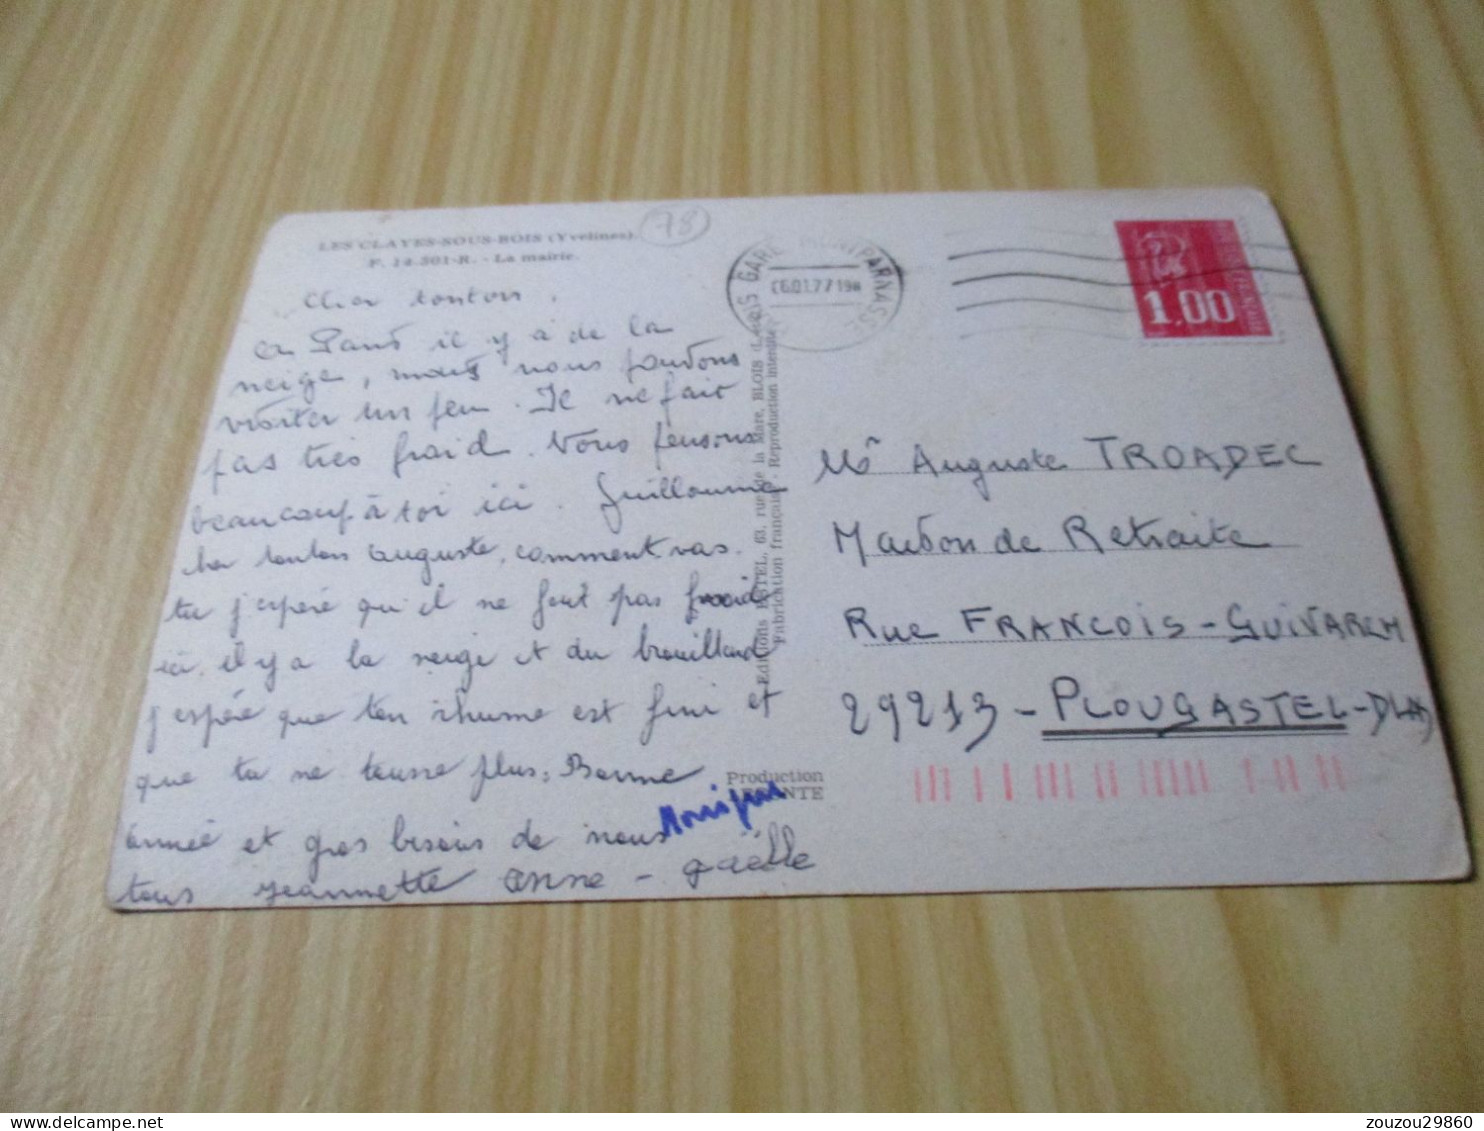 LES CLAYES-SOUS-BOIS (Yvelines)
F. 14-501-R. - La mairie.
78
Cher tonton,
a Paris il y a de la
neige, mais nous pouvons
visiter un peu. Il ne fait
pas très froid. Nous pensons
beaucoup à toi ici. Guillaume
cher tonton auguste, comment vas
tu j'espère qu'il ne fait pas froid
ici, il y a la neige et du brouillard
j'espère que ton rhume est fini et
que tu ne tousse plus, Bonne
année et gros besois de nous
tous Jeannette anne - gaëlle
Monique
GARE MONTPARNASSE
06.01.77 19H
1,00
Editions ESTEL, 63, rue de la Mare, BLOIS
Fabrication française - Reproduction interdite
Production
Mr Auguste TROADEC
Maison de Retraite
Rue FRANCOIS-GUIVARCH
29213-PLOUGASTEL-DLAS
zouzou29860